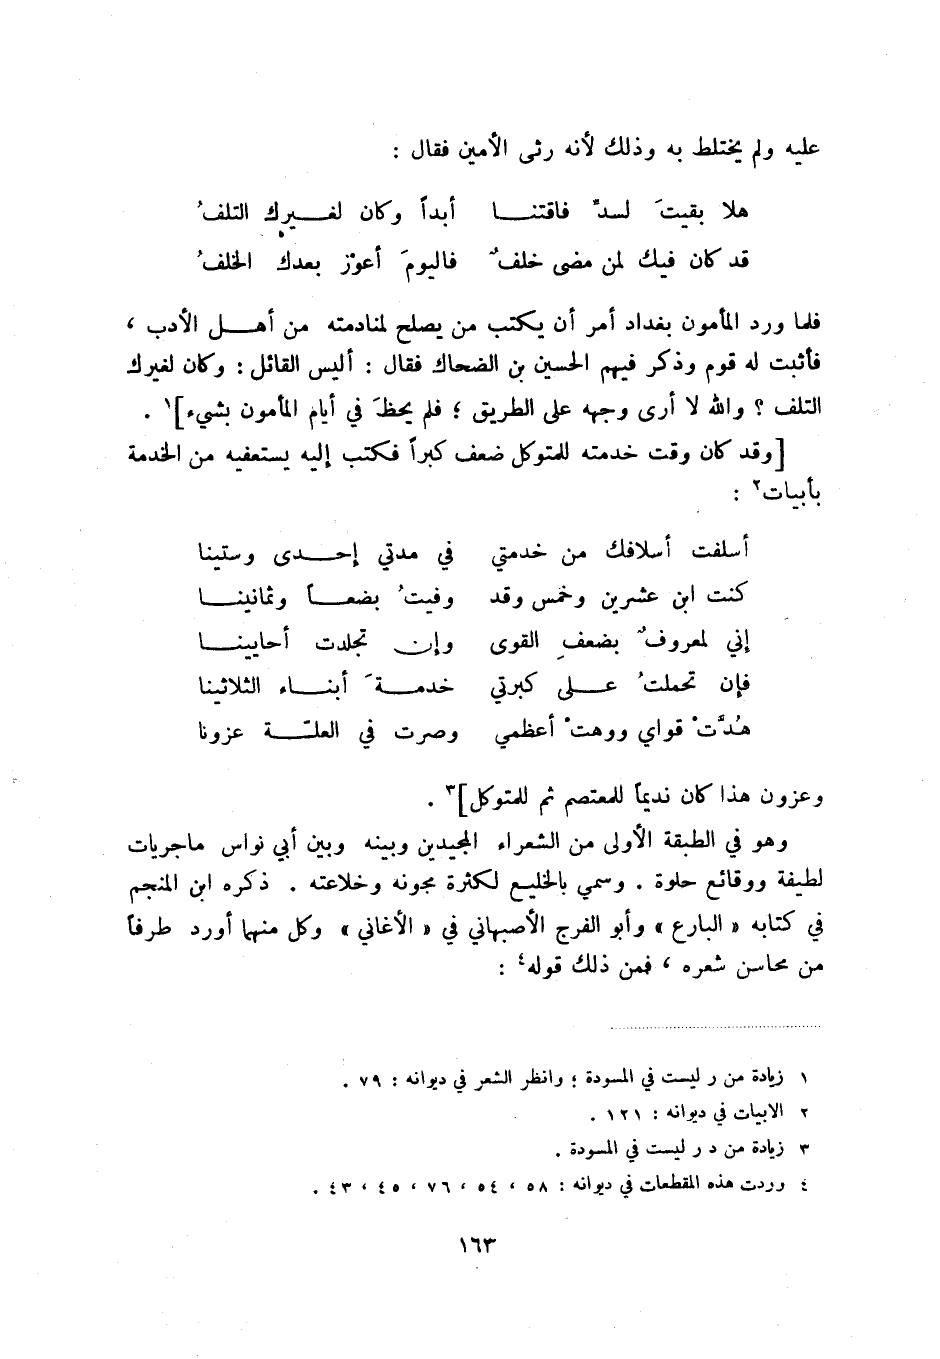 عليه ولم يختلط به وذلك لأنه رثى الأمين فقال :
هلا بقيتَ لسدّ فاقتنـــا أبداً وكان لغـــيرك التلفُ
قد كان فيك لمن مضى خلفٌ فاليومَ أعوزَ بعدك الخلفُ
فلما ورد المأمون بغداد أمر أن يكتب من يصلح لمنادمته من أهـــل الأدب ،
فأثبت له قوم وذكر فيهم الحسين بن الضحاك فقال : أليس القائل : وكان لغيرك
التلف ؟ والله لا أرى وجهه على الطريق ؛ فلم يحظَ في أيام المأمون بشيء]١ .
[وقد كان وقت خدمته للمتوكل ضعف كبراً فكتب إليه يستعفيه من الخدمة
بأبيات٢ :
أسلفت أسلافك من خدمتي في مدتي إحـــدى وستينا
كنت ابن عشرين وخمس وقد وفيتُ بضعـــاً وثمانينـــا
إني لمعروفٌ بضعفِ القوى وإن تجلدت أحايينـــا
فإن تحملتُ عـــلى كبرتي خدمـــةَ أبنـــاء الثلاثينا
هُدَّتْ قواي ووهتْ أعظمي وصرت في العلـّـــة عزونا
وعزون هذا كان نديماً للمعتصم ثم للمتوكل]٣ .
وهو في الطبقة الأولى من الشعراء المجيدين وبينه وبين أبي نواس ماجريات
لطيفة ووقائع حلوة . وسمي بالخليع لكثرة مجونه وخلاعته . ذكره ابن المنجم
في كتابه « البارع » وأبو الفرج الأصبهاني في « الأغاني » وكل منهما أورد طرفاً
من محاسن شعره ، فمن ذلك قوله٤ :
١ زيادة من ر ليست في المسودة ؛ وانظر الشعر في ديوانه : ٧٩ .
٢ الابيات في ديوانه : ١٢١ .
٣ زيادة من د ر ليست في المسودة .
٤ وردت هذه المقطعات في ديوانه : ٥٨ ، ٥٤ ، ٧٦ ، ٤٥ ، ٤٣ .
١٦٣